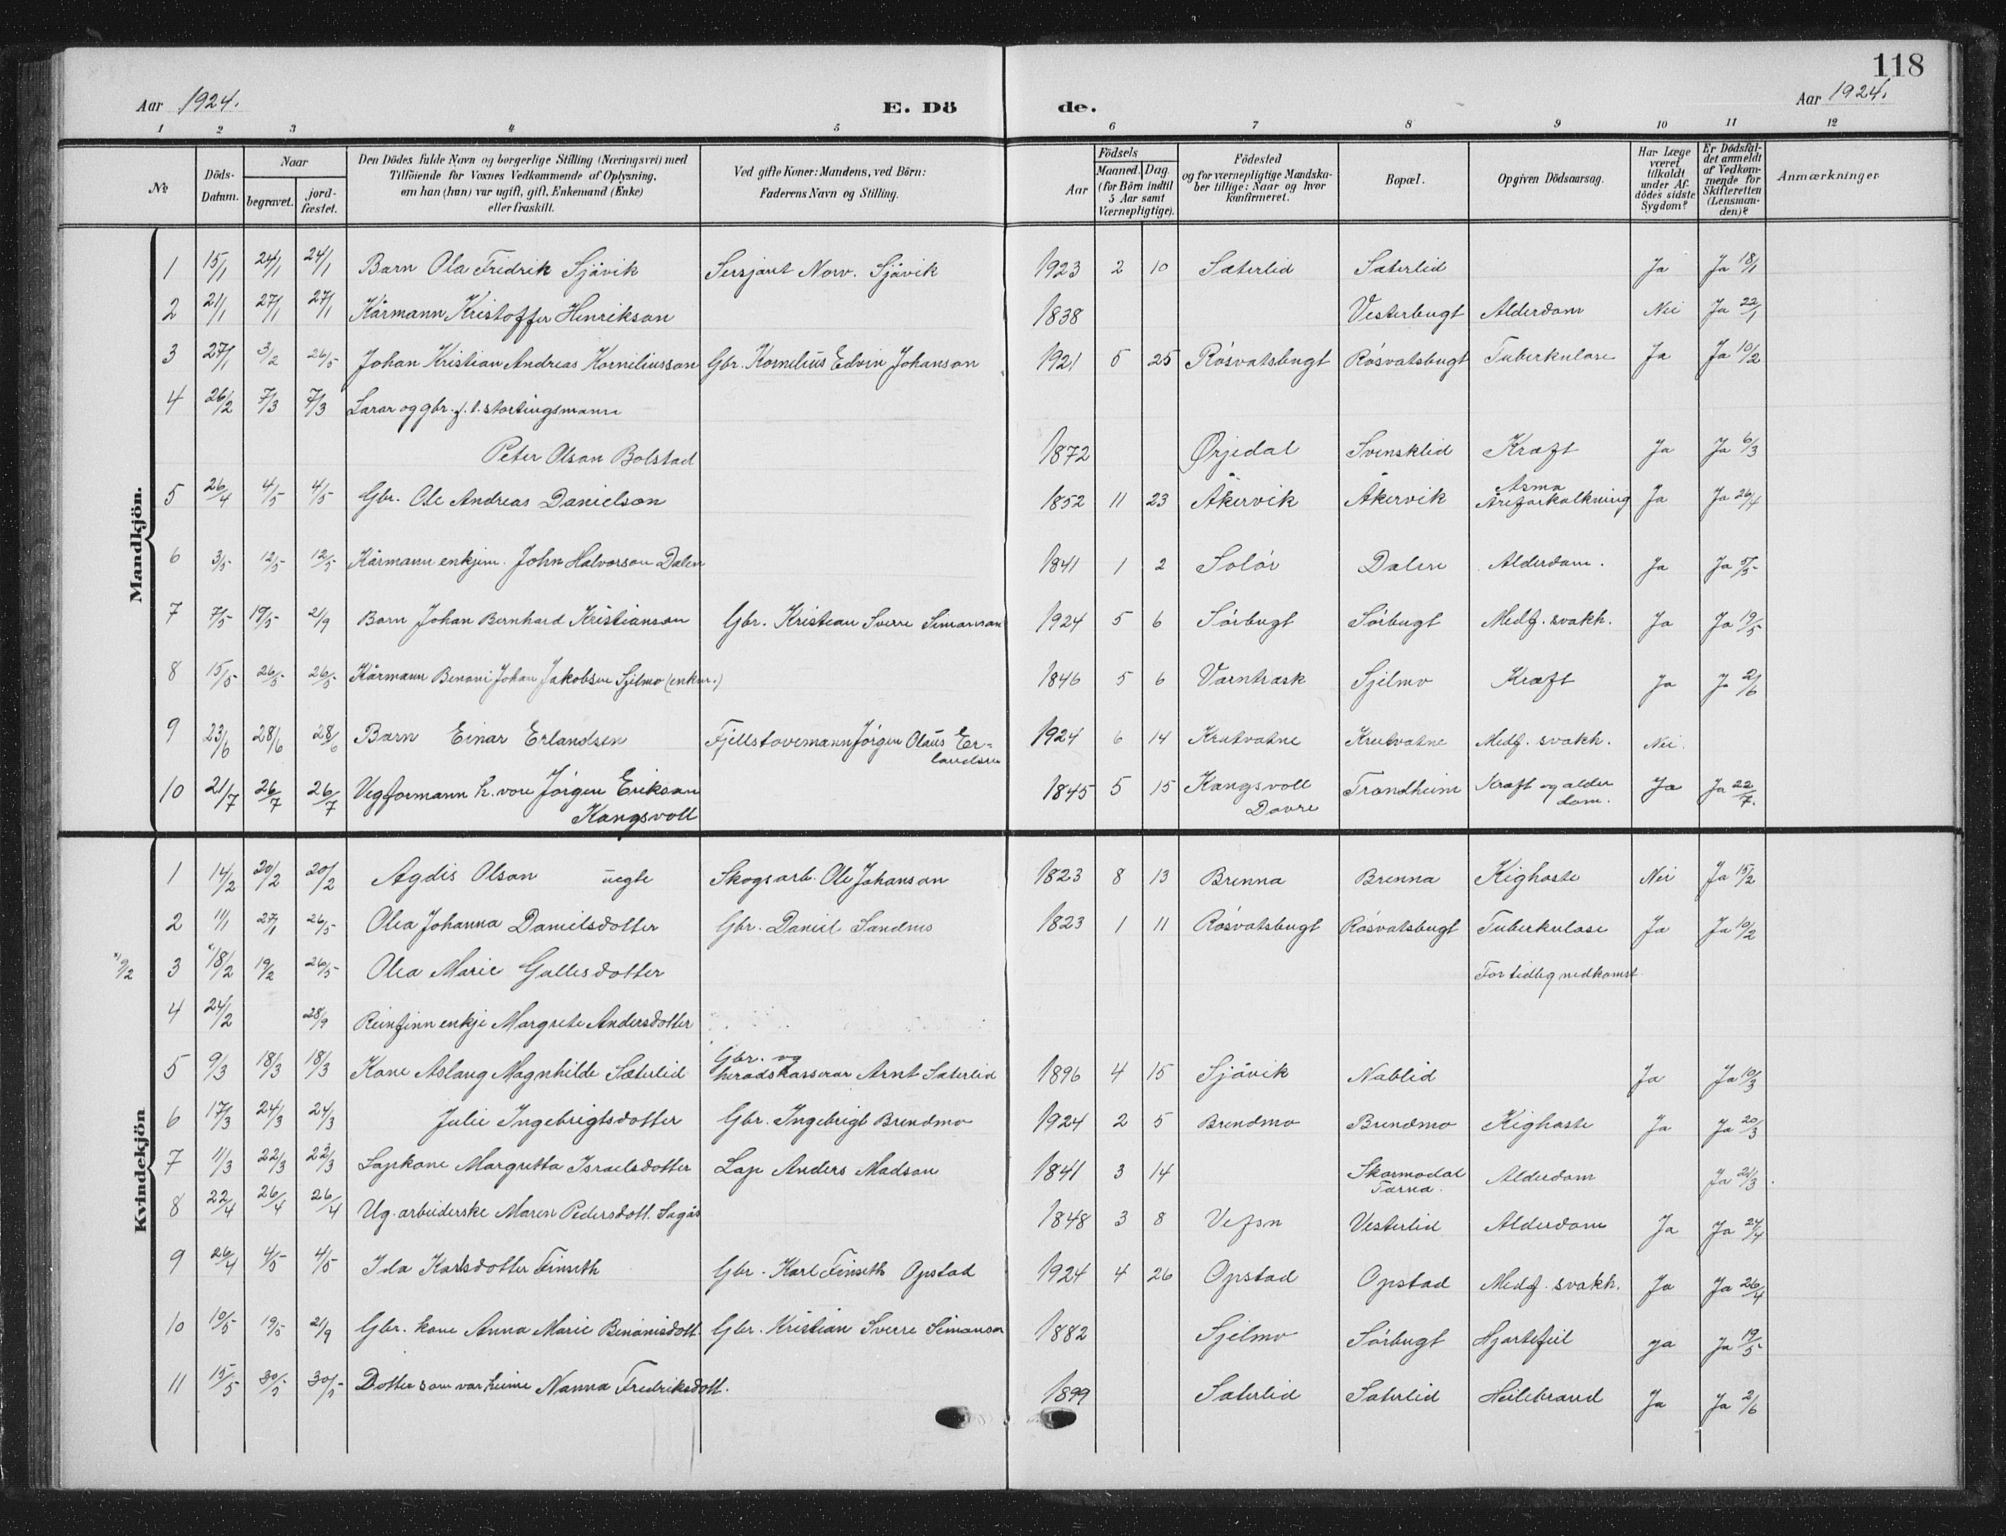 118
Aar 1924. E. Dö de. Aar 1924.
1 2 3 4 5 6 7 8 9 10 11 12
№ Döds-Datum. Naar begravet. jord-fæstet. Den Dödes fulde Navn og borgerlige Stilling (Næringsvei) med Tilföiende for Voxnes Vedkommende af Oplysning, om han (hun) var ugift, gift, Enkemand (Enke) eller fraskilt. Ved gifte Koner: Mandens, ved Börn: Faderens Navn og Stilling. Aar Födsels Maaned. Dag (for Börn indtil 5 Aar samt Værnepligtige). Födested og for værnepligtige Mandska-ber tillige: Naar og hvor konfirmeret. Bopæl. Opgiven Dödsaarsag. Har Læge været tilkaldt under Af-dödes sidste Sygdom? Er Dödsfal-det anmeldt af Vedkom-mende for Skifteretten (Lensman-den)? Anmærkninger
Mandkjön.
1 15/1 24/1 24/1 Barn Ola Fredrik Sjåvik Sersjant Norv. Sjåvik 1923 2 10 Sæterlid Sæterlid Ja Ja 18/1
2 21/1 27/1 27/1 Kårmann Kristoffer Henrikson 1838 Vesterbugt Alderdom Nei Ja 22/1
3 27/1 3/2 26/5 Johan Kristian Andreas Korneliusson Gbr. Kornelius Edvin Johanson 1921 5 25 Røsvatsbugt Røsvatsbugt Tuberkulose Ja Ja 10/2
4 26/2 7/3 7/3 Lærar og gbr. f. t. stortingsmann
Peter Olson Bolstad 1872 Ørjedal Svensklid Kræft Ja Ja 6/3
5 26/4 4/5 4/5 Gbr. Ole Andreas Danielson 1852 11 23 Åkervik Åkervik Asma Åreforkalkning Ja Ja 26/4
6 3/5 12/5 12/5 Kårmann enkjem. John Halvorson Dalen 1841 1 2 Solør Dalen Alderdom. Ja Ja 5/5
7 7/5 19/5 21/9 Barn Johan Bernhard Kristianson Gbr. Kristian Sverre Simonson 1924 5 6 Sørbugt Sørbugt Medf. svakh. Ja Ja 19/5
8 15/5 26/5 26/5 Kårmann Benoni Johan Jakobsen Sjelmo (enkem.) 1846 5 6 Varntræsk Sjelmo Kræft Ja Ja 2/6
9 23/6 28/6 28/6 Barn Einar Erlandsen Fjellstovemann Jørgen Olaus Er-
landsen 1924 6 14 Krutvatne Krutvatne Medf. svakh. Nei.
10 21/7 26/7 26/7 Vegformann h. vore Jørgen Erikson
Kongsvoll 1845 5 15 Kongsvoll Dovre Trondheim Kræft og alder dom. Ja Ja 22/7.
Kvindekjön
1 14/2 20/2 20/2 Agdis Olson uegte Skogsarb. Ole Johanson 1823 8 13 Brenna Brenna Kighoste Nei Ja 15/2
2 11/1 27/1 26/5 Olea Johanna Danielsdotter Gbr. Daniel Sandnes 1823 1 11 Røsvatsbugt Røsvatsbugt Tuberkulose Ja Ja 10/2
3 18/2 19/2 26/5 Olea Marie Gallesdotter For tidleg nedkomst.
4 24/2 28/9 Reinfinn enkje Margrete Andersdotter
5 9/3 18/3 18/3 Kone Aslaug Magnhilde Sæterlid Gbr. og
heradskasserar Arnt Sæterlid 1896 4 15 Sjåvik Nablid Ja Ja 10/3
6 17/3 24/3 24/3 Julie Ingebrigtsdotter Gbr. Ingebrigt Brendmo 1924 2 5 Brendmo Brendmo Kighoste Ja Ja 20/3
7 11/3 22/3 22/3 Lapkone Margretta Israelsdotter Lap Anders Madson 1841 3 14 Skarmodal Tærna. Alderdom Ja 21/3
8 22/4 26/4 26/4 Ug. arbeiderske Maren Pedersdott. Sagås 1848 3 8 Vefsn Vesterlid Alderdom Ja Ja 24/4
9 26/4 4/5 4/5 Ida Karlsdotter Finseth Gbr. Karl Finseth Opstad 1924 4 26 Opstad Opstad Medf. svakh. Ja Ja 26/4
10 10/5 19/5 21/9 Gbr. kone Anna Marie Benonisdott. Gbr. Kristian Sverre Simonson 1882 Sjelmo Sørbugt Hjartefeil Ja Ja 19/5
11 15/5 30/5 30/5 Dotter som var heime Nanna Fredriksdott. 1899 Sæterlid Sæterlid Heilebrand Ja Ja 2/6